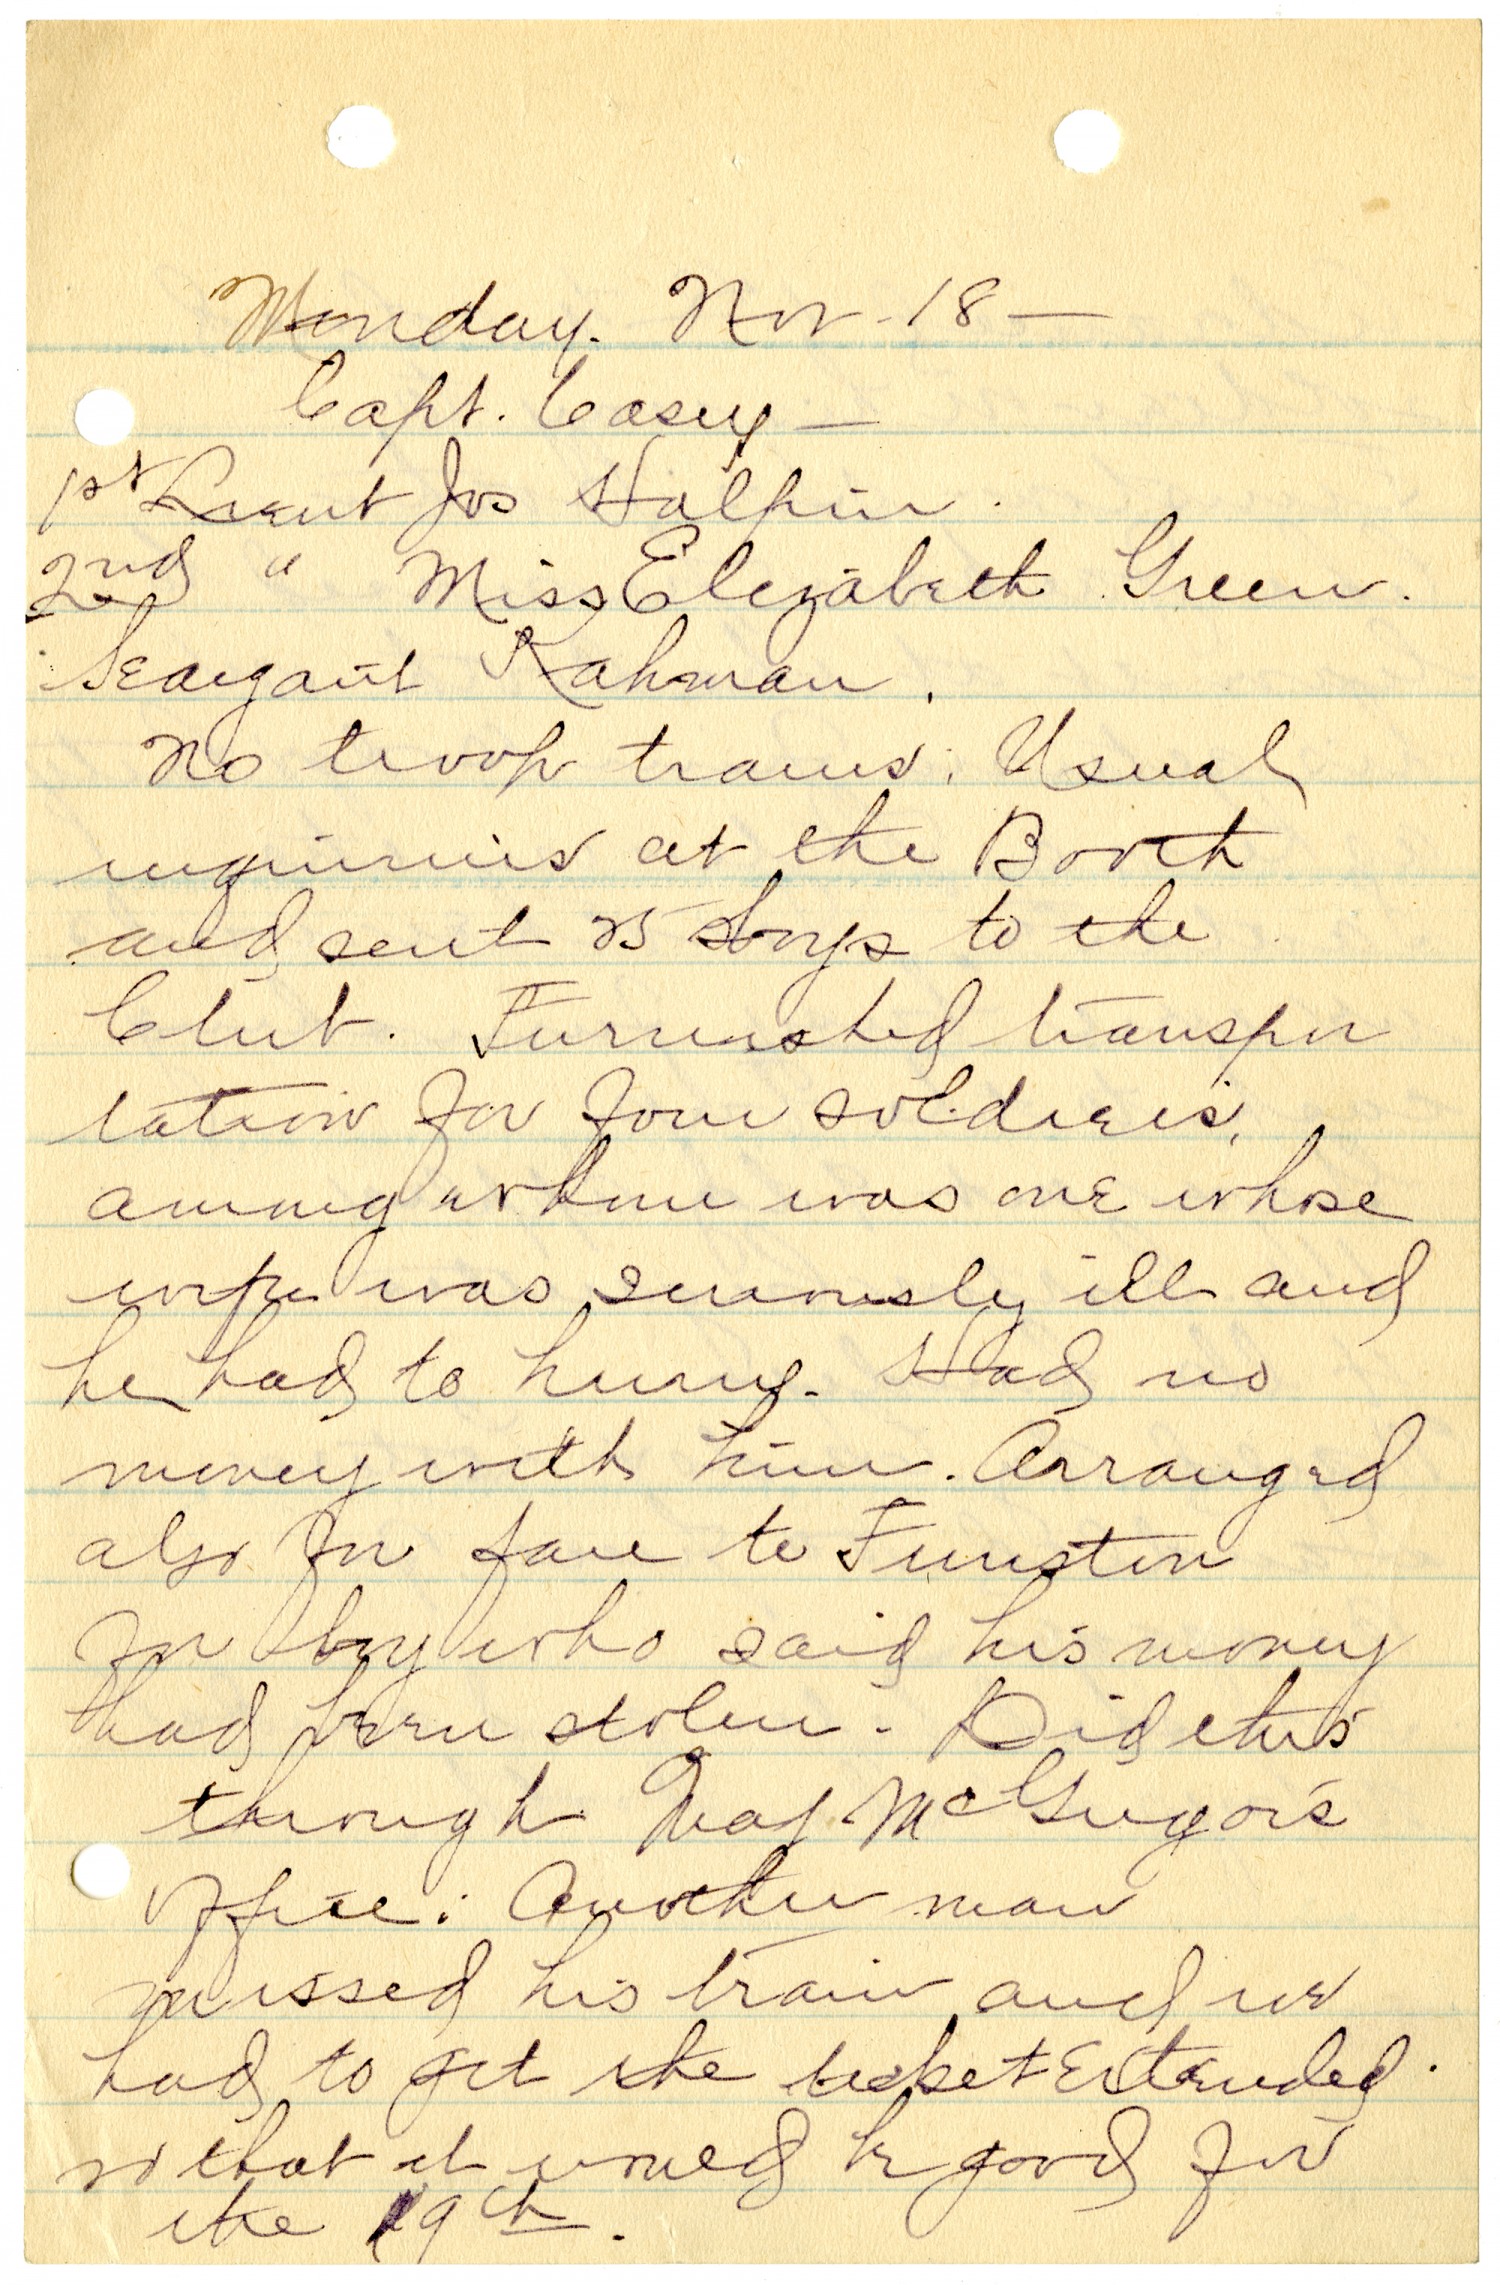 Monday. Nov. 18 —
Capt. Casey —
1st Lieut Jos Halpin.
2nd " Miss Elizabeth Green.
Seargant Kahman.
No troop trains. Usual
inquiries at the Booth
and sent 25 boys to the
Club. Furnished transpor
tation for four soldiers,
among whom was one whose
wife was seriously ill and
he had to hurry. Had no
money with him. Arranged
also for fare to Funston
for boy who said his money
had been stolen. Did this
through Maj. McGregor's
Office. Another man
missed his train and we
had to get the ticket Extended.
so that it would be good for
the 19th.